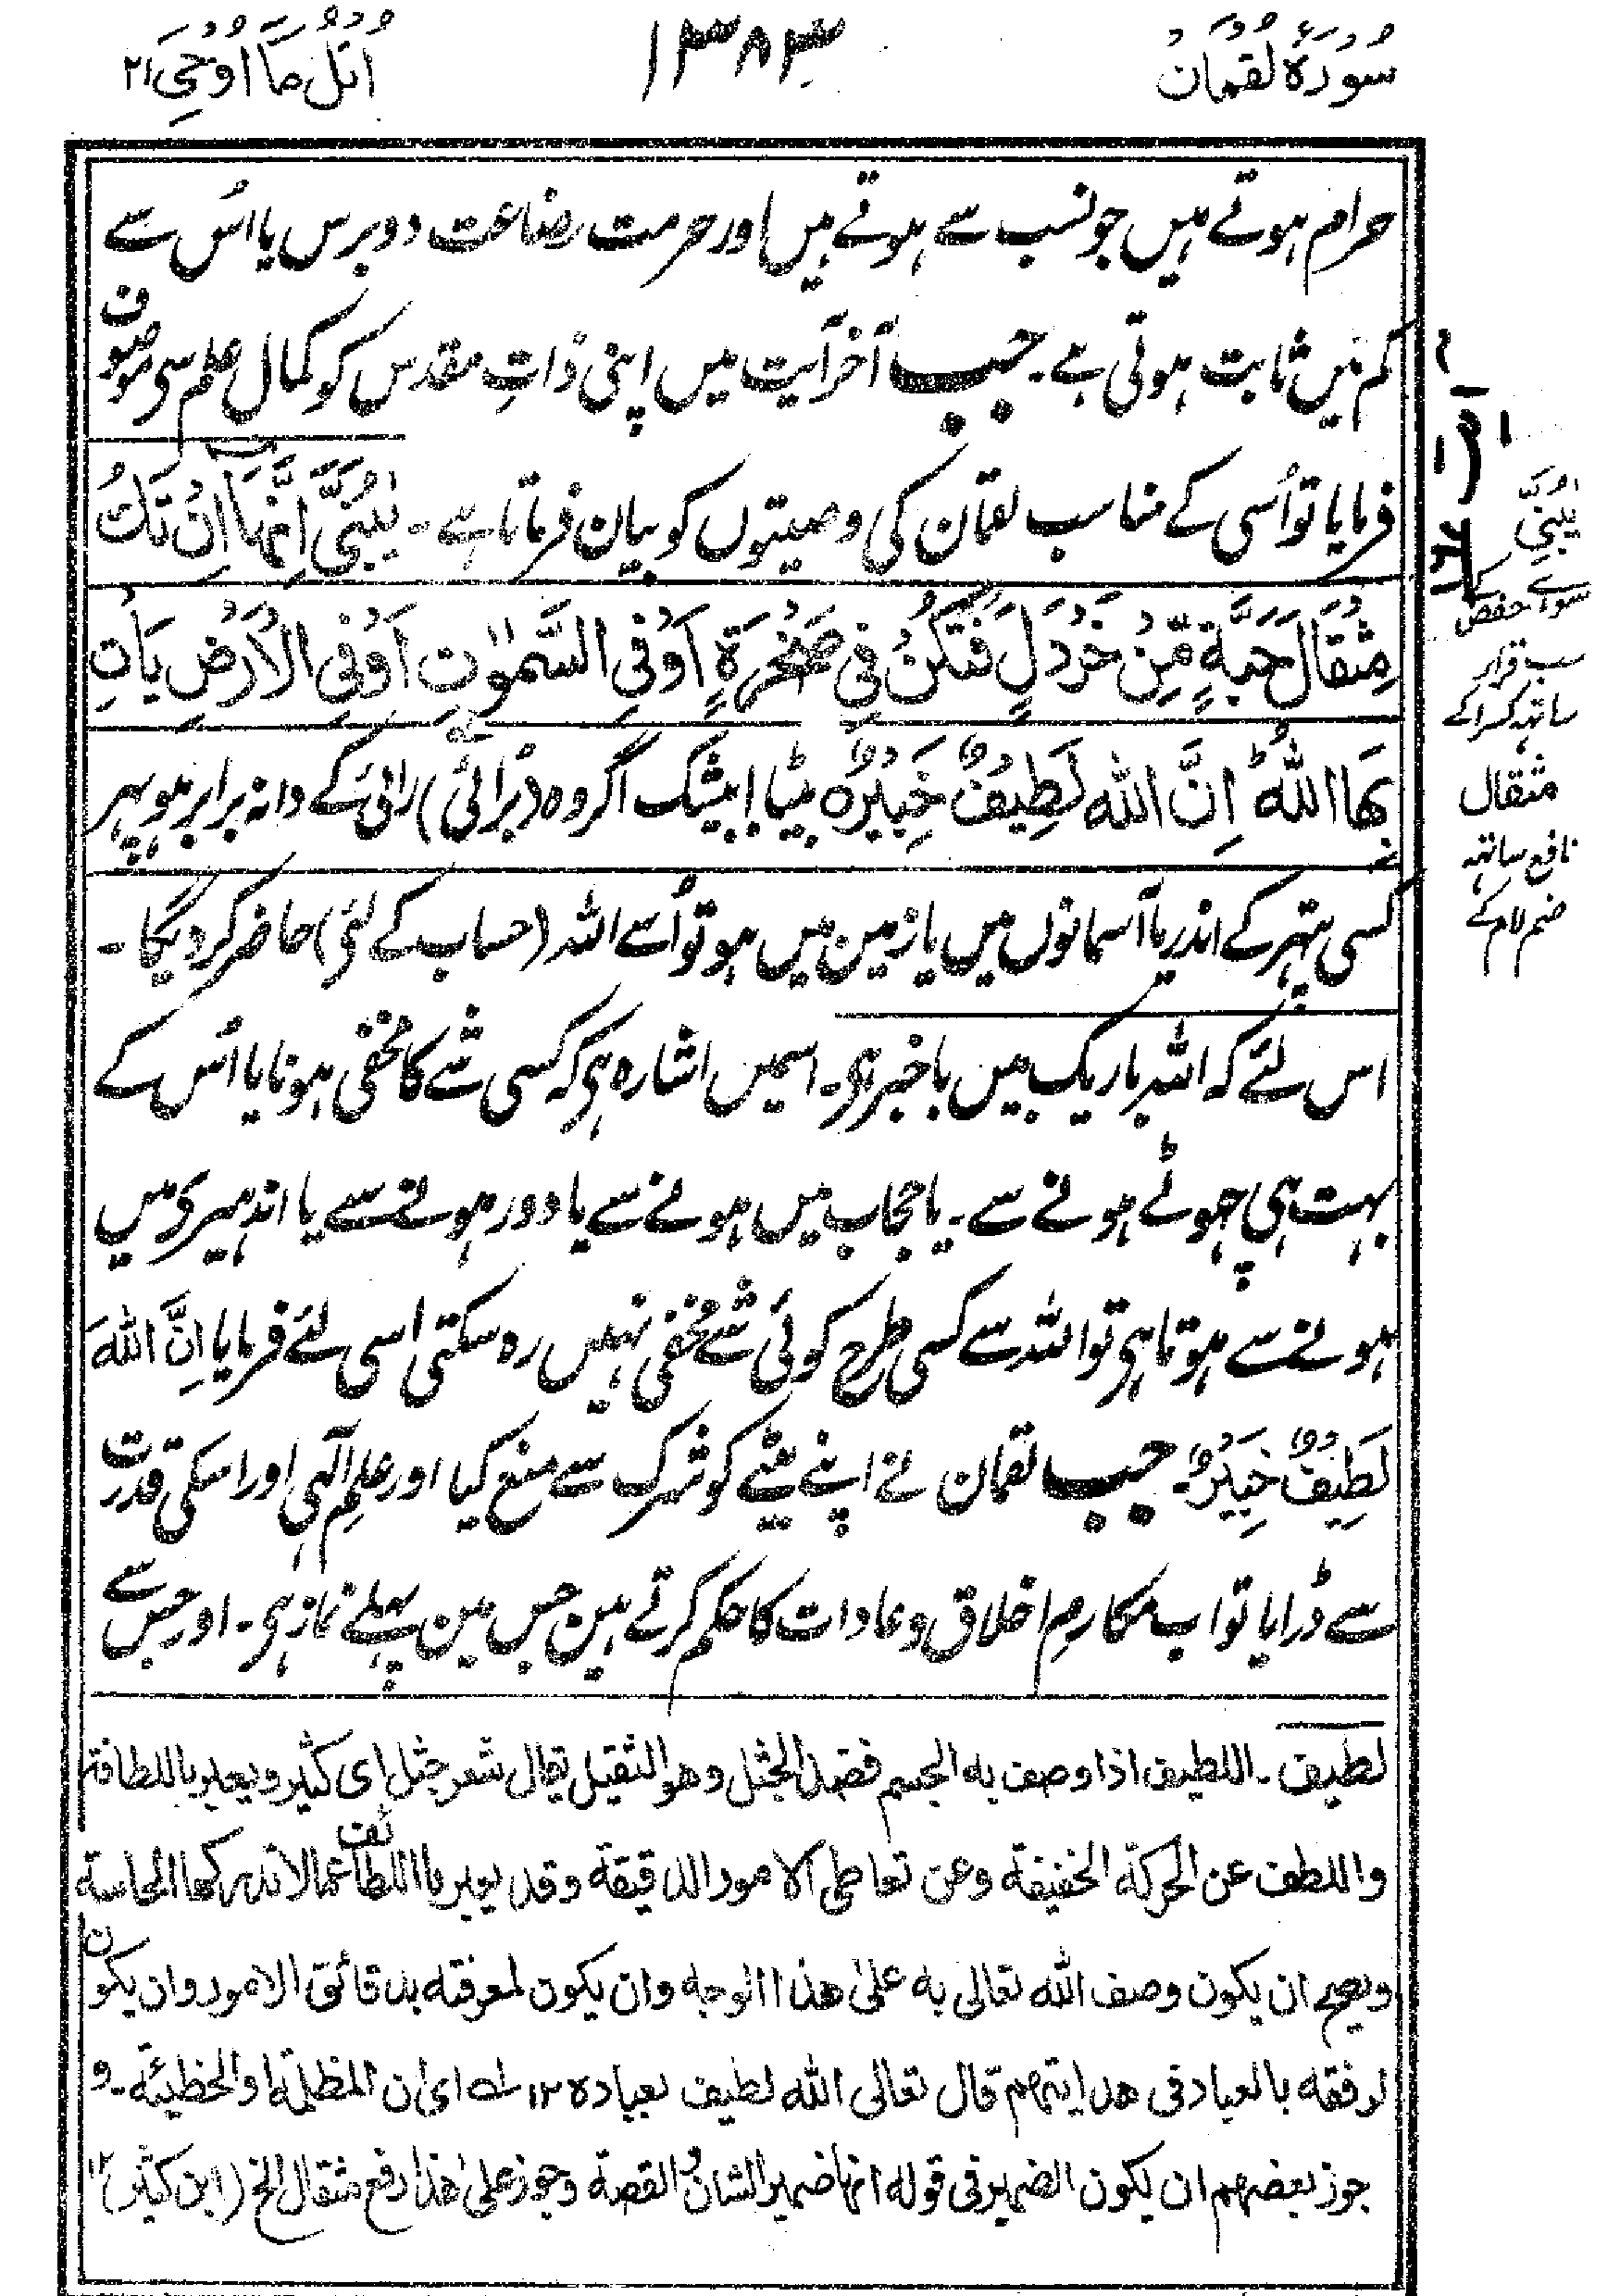 سُوْرَةُ لُقْمَانَ
۱۳۸۳
اُتْلُ مَآ اُوْحِيَ ۲۱
حرام ہوتے ہیں جو نسب سے ہوتے ہیں اور حرمت رضاعت دو برس یا اُس سے
کم میں ثابت ہوتی ہے۔ جب آخر آیت میں اپنی ذاتِ مقدس کو کمال علم سے موصوف
فرمایا تو اُسی کے مناسب لقمان کی وصیتوں کو بیان فرماتا ہے۔ يٰبُنَيَّ اِنَّهَآ اِنْ تَكُ
مِثْقَالَ حَبَّةٍ مِّنْ خَرْدَلٍ فَتَكُنْ فِي صَخْرَةٍ اَوْ فِي السَّمٰوٰتِ اَوْ فِي الْاَرْضِ يَاْتِ
بِهَا اللّٰهُ ؕ اِنَّ اللّٰه لَطِيْفٌ خَبِيْرٌ ہ بیٹا! بیشک اگر وہ (بُرائی) رائی کے دانہ برابر ہو پہر
کسی پتہر کے اندر یا آسمانوں میں یا زمین میں ہو تو اُسے اللہ (حساب کے لئی) حاضر کر دیگا۔
اس لئے کہ اللہ باریک بیں با خبر ہی۔ اسمیں اشارہ ہی کہ کسی شے کا مخفی ہونا یا اُس کے
بہت ہی چہوٹے ہونے سے۔ یا حجاب میں ہونے سے یا دور ہونے سے یا اندہیری میں
ہونے سے ہوتا ہی تو اللہ سے کسی طرح کوئی شے مخفی نہیں رہ سکتی اسی لئے فرمایا اِنَّ اللّٰهَ
لَطِيْفٌ خَبِيْرٌ۔ جب لقمان نے اپنے بیٹے کو شرک سے منع کیا اور علمِ آلہی اور اسکی قدرت
سے ڈرایا تو اب مکارمِ اخلاق و عادات کا حکم کرتے ہین جس مین پہلے نماز ہی۔ اور جس سے
لطيف۔ اللطيف اذا وصف به الجسم فضد الجثل وهو الثقيل يقال شعر جثل اى كثير ويعبر باللطافة
واللطف عن الحركة الخفيفة وعن تعاطى الامور الدقيقة وقد يعبر باللطائف عما لا تدركها الحاسة
ويصح ان يكون وصف الله تعالى به على هذا الوجه وان يكون لمعرفته بدقائق الامور وان يكون
لرفقه بالعباد فى هدايتهم قال تعالى الله لطيف بعباده ۱۲ اى ان المظلمة او الخطيئة۔ و
جوز بعضهم ان يكون الضمير فى قوله انها ضمير الشان و القصة وجوز على هذا رفع مثقال الخ (ابن كثير) ۱۲
يٰبُنَيِّ
سوائے حفص کے
سب قرار
ساتہ کسرا کے
مثقال
نافع ساتہہ
ضم لام کے